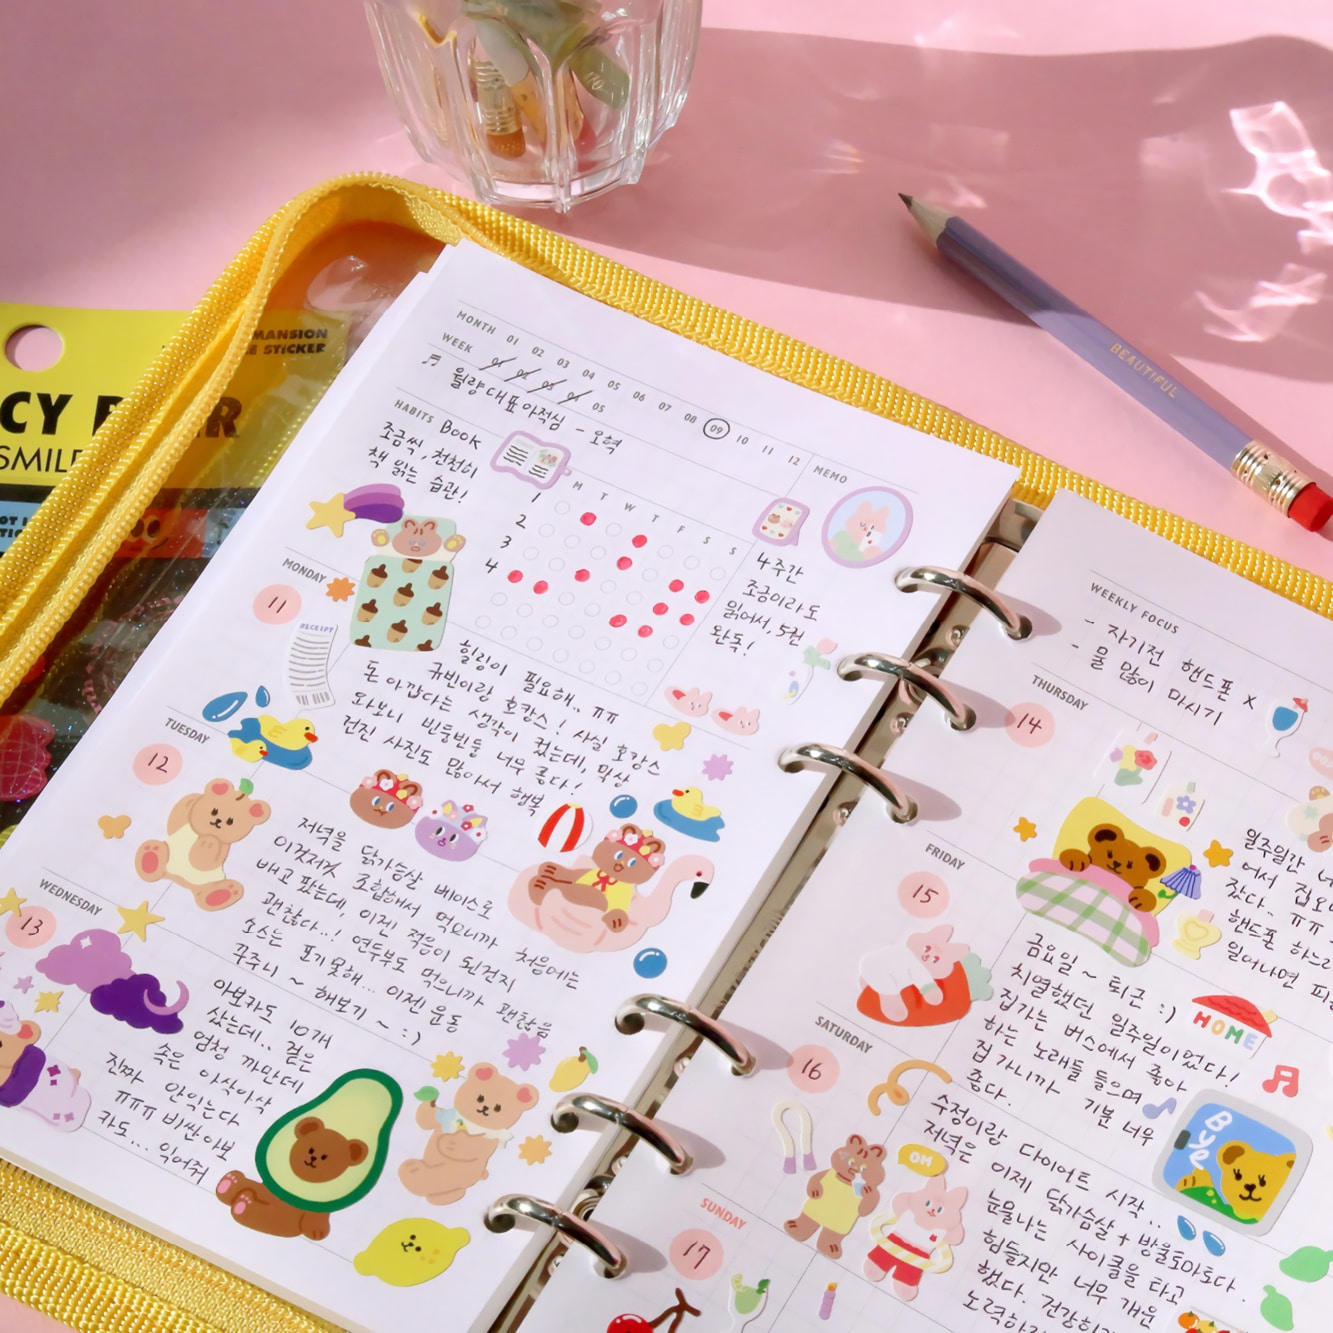 MANSION
STICKER
CY
SMILE
BEAUTIFUL
MONTH 01 02 03 04 05 06 07 08 09 10 11 12
WEEK 01 02 03 04 05
월량대표아적심 - 오혁
HABITS Book
조금씩, 천천히
책 읽는 습관!
M T W T F S S
1
2
3
4
MEMO
4주간
조금이라도
읽어서, 5권
완독!
MONDAY
11
RECEIPT
힐링이 필요해.. ㅠㅠ
규빈이랑 호캉스! 사실 호캉스
돈 아깝다는 생각이 컸는데, 막상
와보니 빈둥빈둥 너무 좋다!
건진 사진도 많아서 행복
TUESDAY
12
저녁을 닭가슴살 베이스로
이것저것 조합해서 먹으니까 처음에는
배고팠는데, 이젠 적응이 된건지
괜찮다..! 연두부도 먹으니까 괜찮음
소스는 포기못해... 이젠 운동
꾸주니 ~ 해보기 ~ :)
WEDNESDAY
13
아보카도 10개
샀는데.. 겉은
엄청 까만데
속은 아삭아삭
진짜 안익는다
ㅠㅠㅠ 비싼아보
카도... 익어줘
WEEKLY FOCUS
- 자기전 핸드폰 X
- 물 많이 마시기
THURSDAY
14
일주일간
어서 집오
잤다.. ㅠㅠ
핸드폰 하느라
일어나면
FRIDAY
15
금요일 ~ 퇴근 :)
치열했던 일주일이었다!
집가는 버스에서 좋아
하는 노래들 들으며
집가니까 기분 너무
좋다.
HOME
Bye
SATURDAY
16
OH
수정이랑 다이어트 시작..
저녁은 이제 닭가슴살 + 방울토마토다.
눈물나는 사이클을 타고
힘들지만 너무 개운
했다. 건강하게
SUNDAY
17